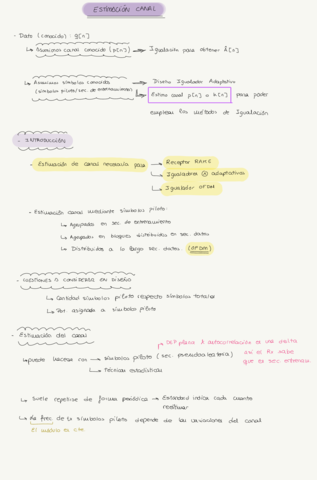 ESTIMACIÓN CANAL
- Dato (conocido): q[n]
↳ Asumimos canal conocido (p[n]) → Igualación para obtener A[n]
↳ Asumimos símbolos conocidos → Diseño Igualador Adaptativo
(símbolos piloto/sec. de entrenamiento) ↳ Estimo canal p[n] o h[n] para poder
emplear los métodos de Igualación
- INTRODUCCIÓN
- Estimación de canal necesaria para → Receptor RAKE
↳ Igualadores adaptativos
↳ Igualador OFDM
- Estimación canal mediante símbolos piloto:
↳ Agrupados en sec. de entrenamiento
↳ Agrupados en bloques distribuidos en sec. datos
↳ Distribuidos a lo largo sec. datos (OFDM)
- CUESTIONES A CONSIDERAR EN DISEÑO
↳ Cantidad símbolos piloto respecto símbolos totales
↳ Pot. asignada a símbolos piloto
- Estimación del canal
DEP plana & autocorrelación es una delta
↳ puede hacerse con → símbolos piloto (sec. pseudoaleatoria) así el Rx sabe
que es sec. entrenam.
↳ Técnicas estadísticas
↳ Suele repetirse de forma periódica → Estándar indica cada cuanto
reestimar
↳ La frec. de los símbolos piloto depende de las variaciones del canal